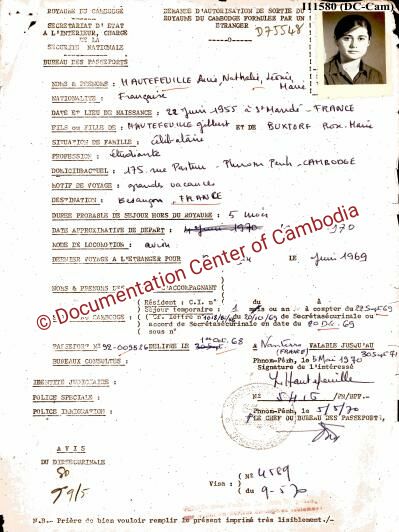 ROYAUME DU CAMBODGE
SECRETARIAT D'ETAT
A L'INTERIEUR, CHARGE
DE LA
SECURITE NATIONALE
BUREAU DES PASSEPORTS
DEMANDE D'AUTORISATION DE SORTIE DU
ROYAUME DU CAMBODGE FORMULEE PAR UN
ETRANGER
D75548
I11580 (DC-Cam)
NOMS & PRENOMS : HAUTEFEUILLE Anie, Nathalie, Léonie, Marie
NATIONALITE : Française
DATE ET LIEU DE NAISSANCE : 22 Juin 1955 à St Mandé - FRANCE
FILS ou FILLE DE : HAUTEFEUILLE Gilbert ET DE BUXTORF Rose-Marie
SITUATION DE FAMILLE : célibataire
PROFESSION : étudiante
DOMICILE ACTUEL : 175 rue Pasteur - Phnom Penh - CAMBODGE
MOTIF DE VOYAGE : grandes vacances
DESTINATION : Besançon, FRANCE
DUREE PROBABLE DE SEJOUR HORS DU ROYAUME : 5 mois
DATE APPROXIMATIVE DE DEPART : 4 Juin 1970
MODE DE LOCOMOTION : avion
DERNIER VOYAGE A L'ETRANGER POUR
Juin 1969
NOMS & PRENOMS DES ACCOMPAGNANT
© Documentation Center of Cambodia
Résident : C.I. n° du
Séjour temporaire : 1 an à compter du 22 Sept 69
du 20/10/69 de Secrétsécurinale ou
accord de Secrétsécurinale en date du 20 Dec 69
sous n°
PASSEPORT N° 92-009526 DELIVRE LE 1er Oct. 68 à Nanterre (FRANCE) VALABLE JUSQU'AU 30 Sept 71
BUREAUX CONSULTES :
Phnom-Penh, le 5 Mai 1970
Signature de l'intéressé
IDENTITE JUDICIAIRE :
POLICE SPECIALE :
POLICE IMMIGRATION :
N° 5415 /PS/BPP.-
Phnom-Penh, le 5/5/70
LE CHEF DU BUREAU DES PASSEPORTS,
AVIS
DU DIRSECURINALE
Visa : N° 4589
du 9-5-70
N.B.- Prière de bien vouloir remplir le présent imprimé très lisiblement./-